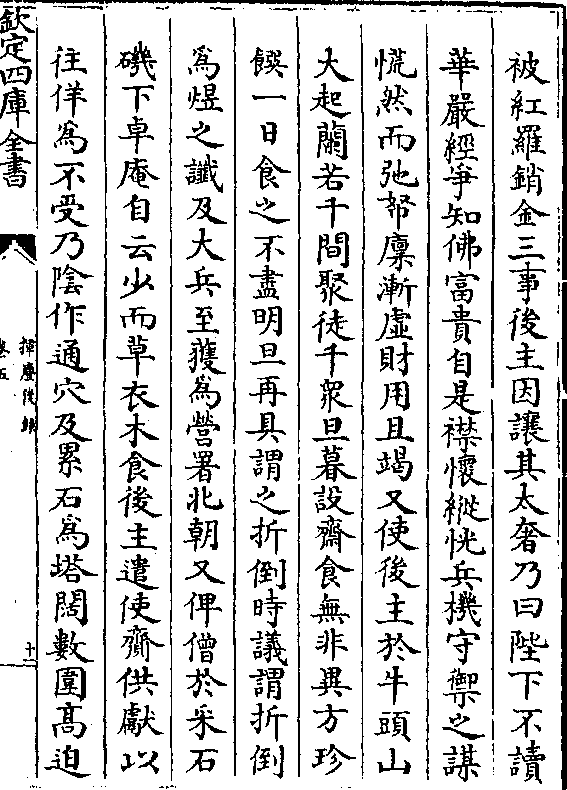 被紅羅銷金三事後主因讓其太奢乃曰陛下不讀
華嚴經爭知佛富貴自是襟懷縱恍兵機守禦之謀
慌然而弛帑廩漸虛財用且竭又使後主於牛頭山
大起蘭若千間聚徒千衆旦暮設齋食無非異方珍
饌一日食之不盡明旦再具謂之折倒時議謂折倒
爲煜之讖及大兵至獲爲營署北朝又俾僧於采石
磯下卓庵自云少而草衣木食後主遣使齎供獻以
往佯爲不受乃陰作通穴及累石爲塔闊數圍高迫
欽定四庫全書
揮麈後錄
卷五
十一